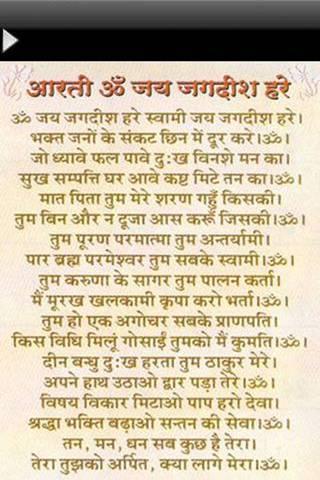 आरती ॐ जय जगदीश हरे
ॐ जय जगदीश हरे स्वामी जय जगदीश हरे।
भक्त जनों के संकट छिन में दूर करे।ॐ।
जो ध्यावे फल पावे दुःख विनशे मन का।
सुख सम्पत्ति घर आवे कष्ट मिटे तन का।ॐ।
मात पिता तुम मेरे शरण गहूँ किसकी।
तुम बिन और न दूजा आस करूँ जिसकी।ॐ।
तुम पूरण परमात्मा तुम अन्तर्यामी।
पार ब्रह्म परमेश्वर तुम सबके स्वामी।ॐ।
तुम करुणा के सागर तुम पालन कर्ता।
मैं मूरख खलकामी कृपा करो भर्ता।ॐ।
तुम हो एक अगोचर सबके प्राणपति।
किस विधि मिलूं गोसाईं तुमको मैं कुमति।ॐ।
दीन बन्धु दुःख हरता तुम ठाकुर मेरे।
अपने हाथ उठाओ द्वार पड़ा तेरे।ॐ।
विषय विकार मिटाओ पाप हरो देवा।
श्रद्धा भक्ति बढ़ाओ सन्तन की सेवा।ॐ।
तन, मन, धन सब कुछ है तेरा।
तेरा तुझको अर्पित, क्या लागे मेरा।ॐ।